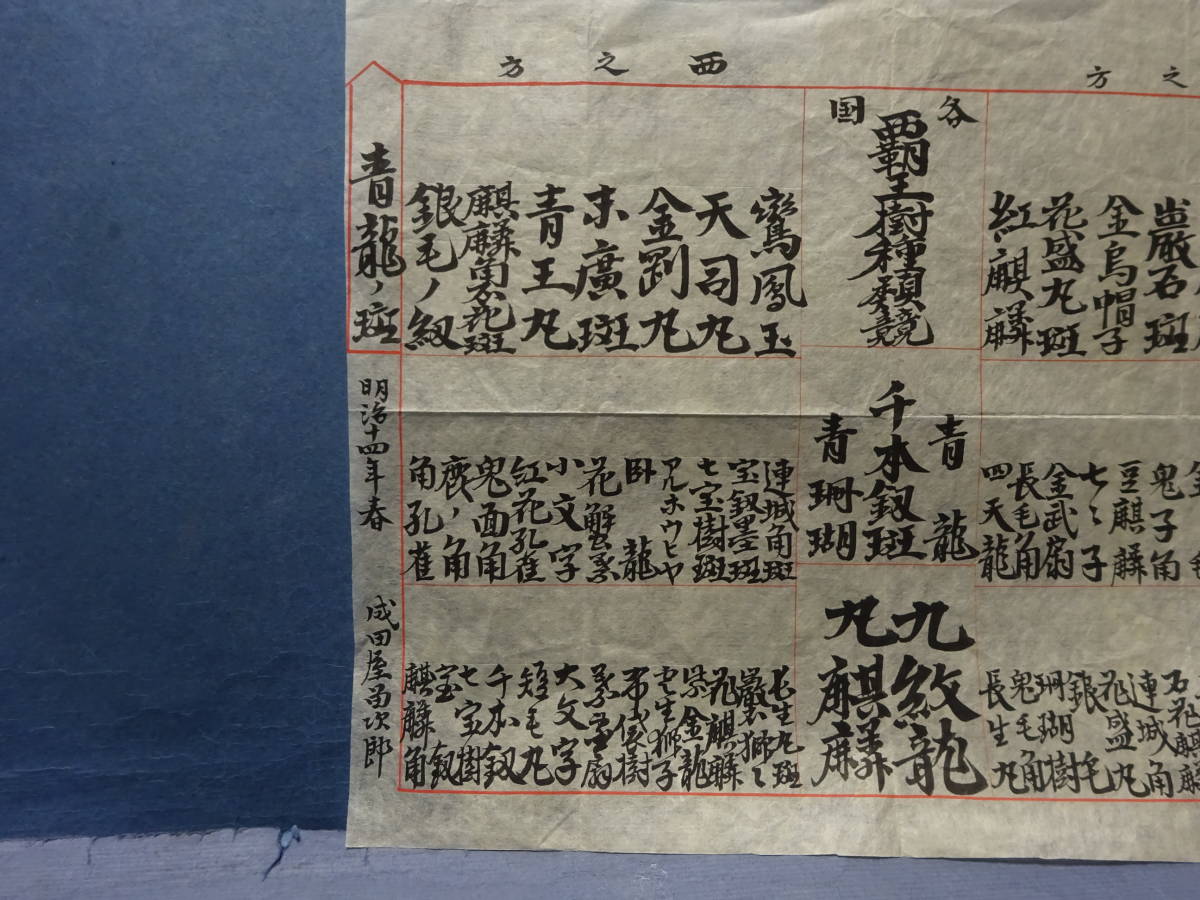 之方
豈嚴石斑
金烏帽子
花盛丸斑
紅麒麟
鬼子角
豆麒麟
七〻子
金武扇
長毛角
四天龍
石花麒麟
連城角
花盛丸
銀毛
珊瑚樹
鬼毛角
長生丸
各国
覇王樹種類競
青龍
千本釼斑
青珊瑚
九紋龍
九麒麟
西之方
鸞鳳玉
天司丸
金剛丸
末廣斑
青王丸
麒麟角花斑
銀毛ノ釼
連城角斑
宝釼墨斑
七宝樹斑
アルホウヒヤ
卧龍
花蟹
小文字
紅花孔雀
鬼面角
齊ノ角
角孔雀
長生丸斑
嚴獅〻
花麒麟
紫金龍
布袋樹
大文字
短毛丸
千本釼
七宝樹
宝釼
麒麟角
青龍ノ斑
明治十四年春
成田屋留次郎